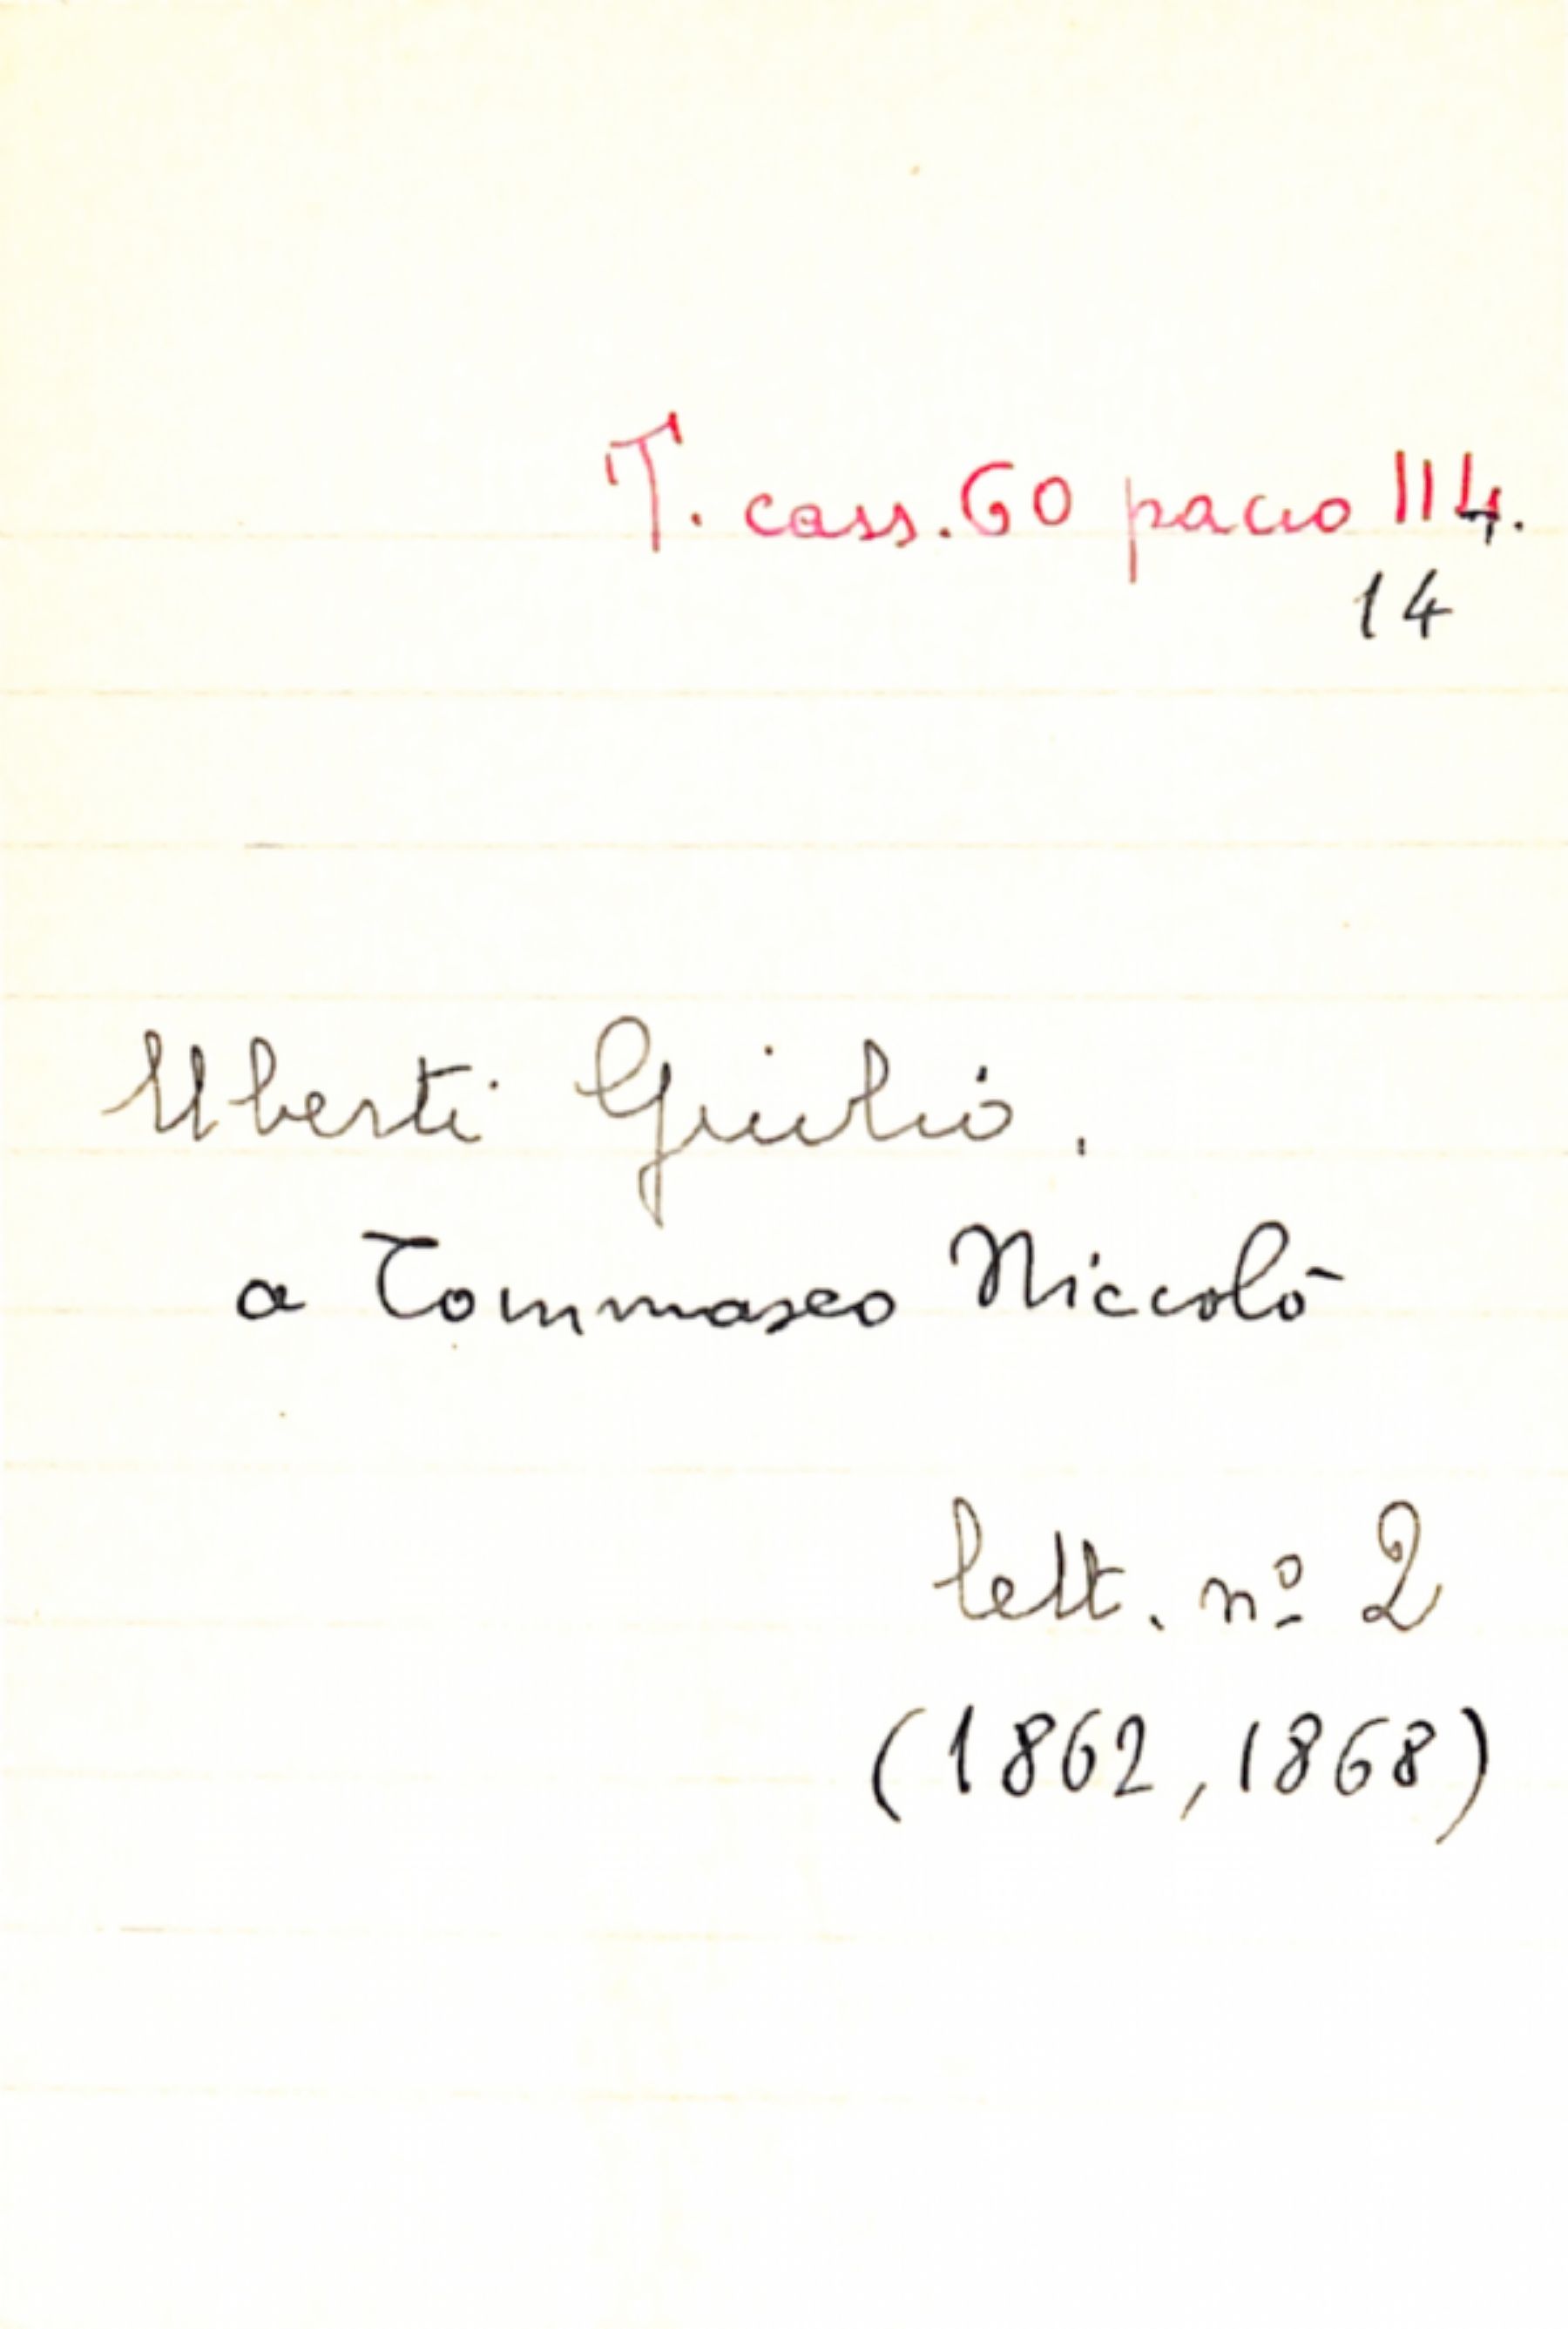 T. cass. 60 pacco 114.
14
Uberti Giulio.
a Tommaseo Niccolò
lett. nº 2
(1862, 1868)